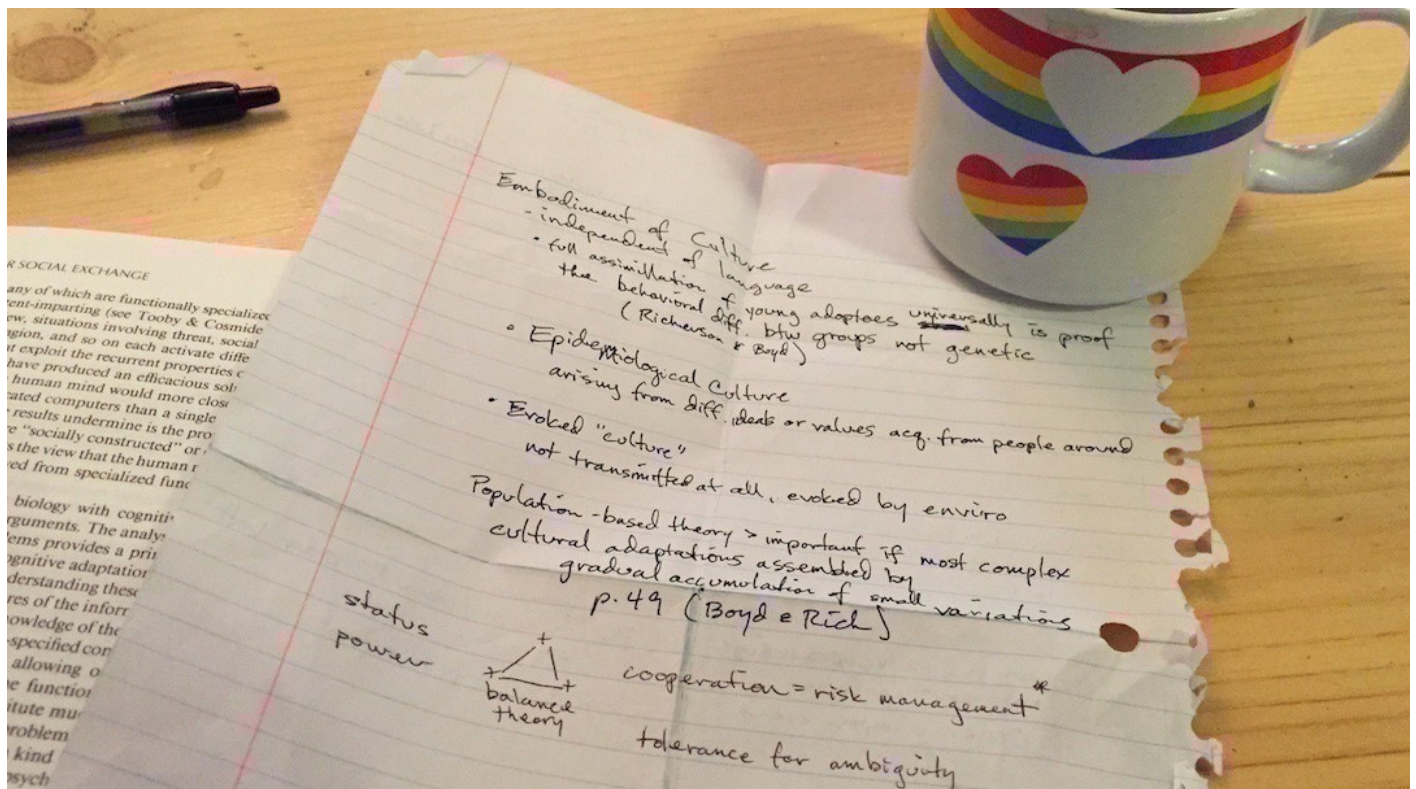 R SOCIAL EXCHANGE
any of which are functionally specialized
ent-imparting (see Tooby & Cosmide
ew, situations involving threat, social
gion, and so on each activate diffe
at exploit the recurrent properties c
have produced an efficacious sol
human mind would more close
ated computers than a single
results undermine is the pro
re "socially constructed" or
s the view that the human r
ved from specialized func
biology with cogniti
rguments. The analy
ems provides a prin
ognitive adaptation
derstanding these
res of the inforr
owledge of the
-specified con
allowing o
e function
itute mu
roblem
kind
psych
Embodiment of Culture
- independent of language
• full assimillation of young adoptees universally is proof
the behavioral diff. btw groups not genetic
(Richerson & Boyd)
• Epidemiological Culture
arising from diff. ideas or values acq. from people around
• Evoked "culture"
not transmitted at all, evoked by enviro
Population-based theory > important if most complex
cultural adaptations assembled by
gradual accumulation of small variations
p. 49 (Boyd & Rich)
status
power
+
+ +
balance
theory
cooperation = risk management*
tolerance for ambiguity